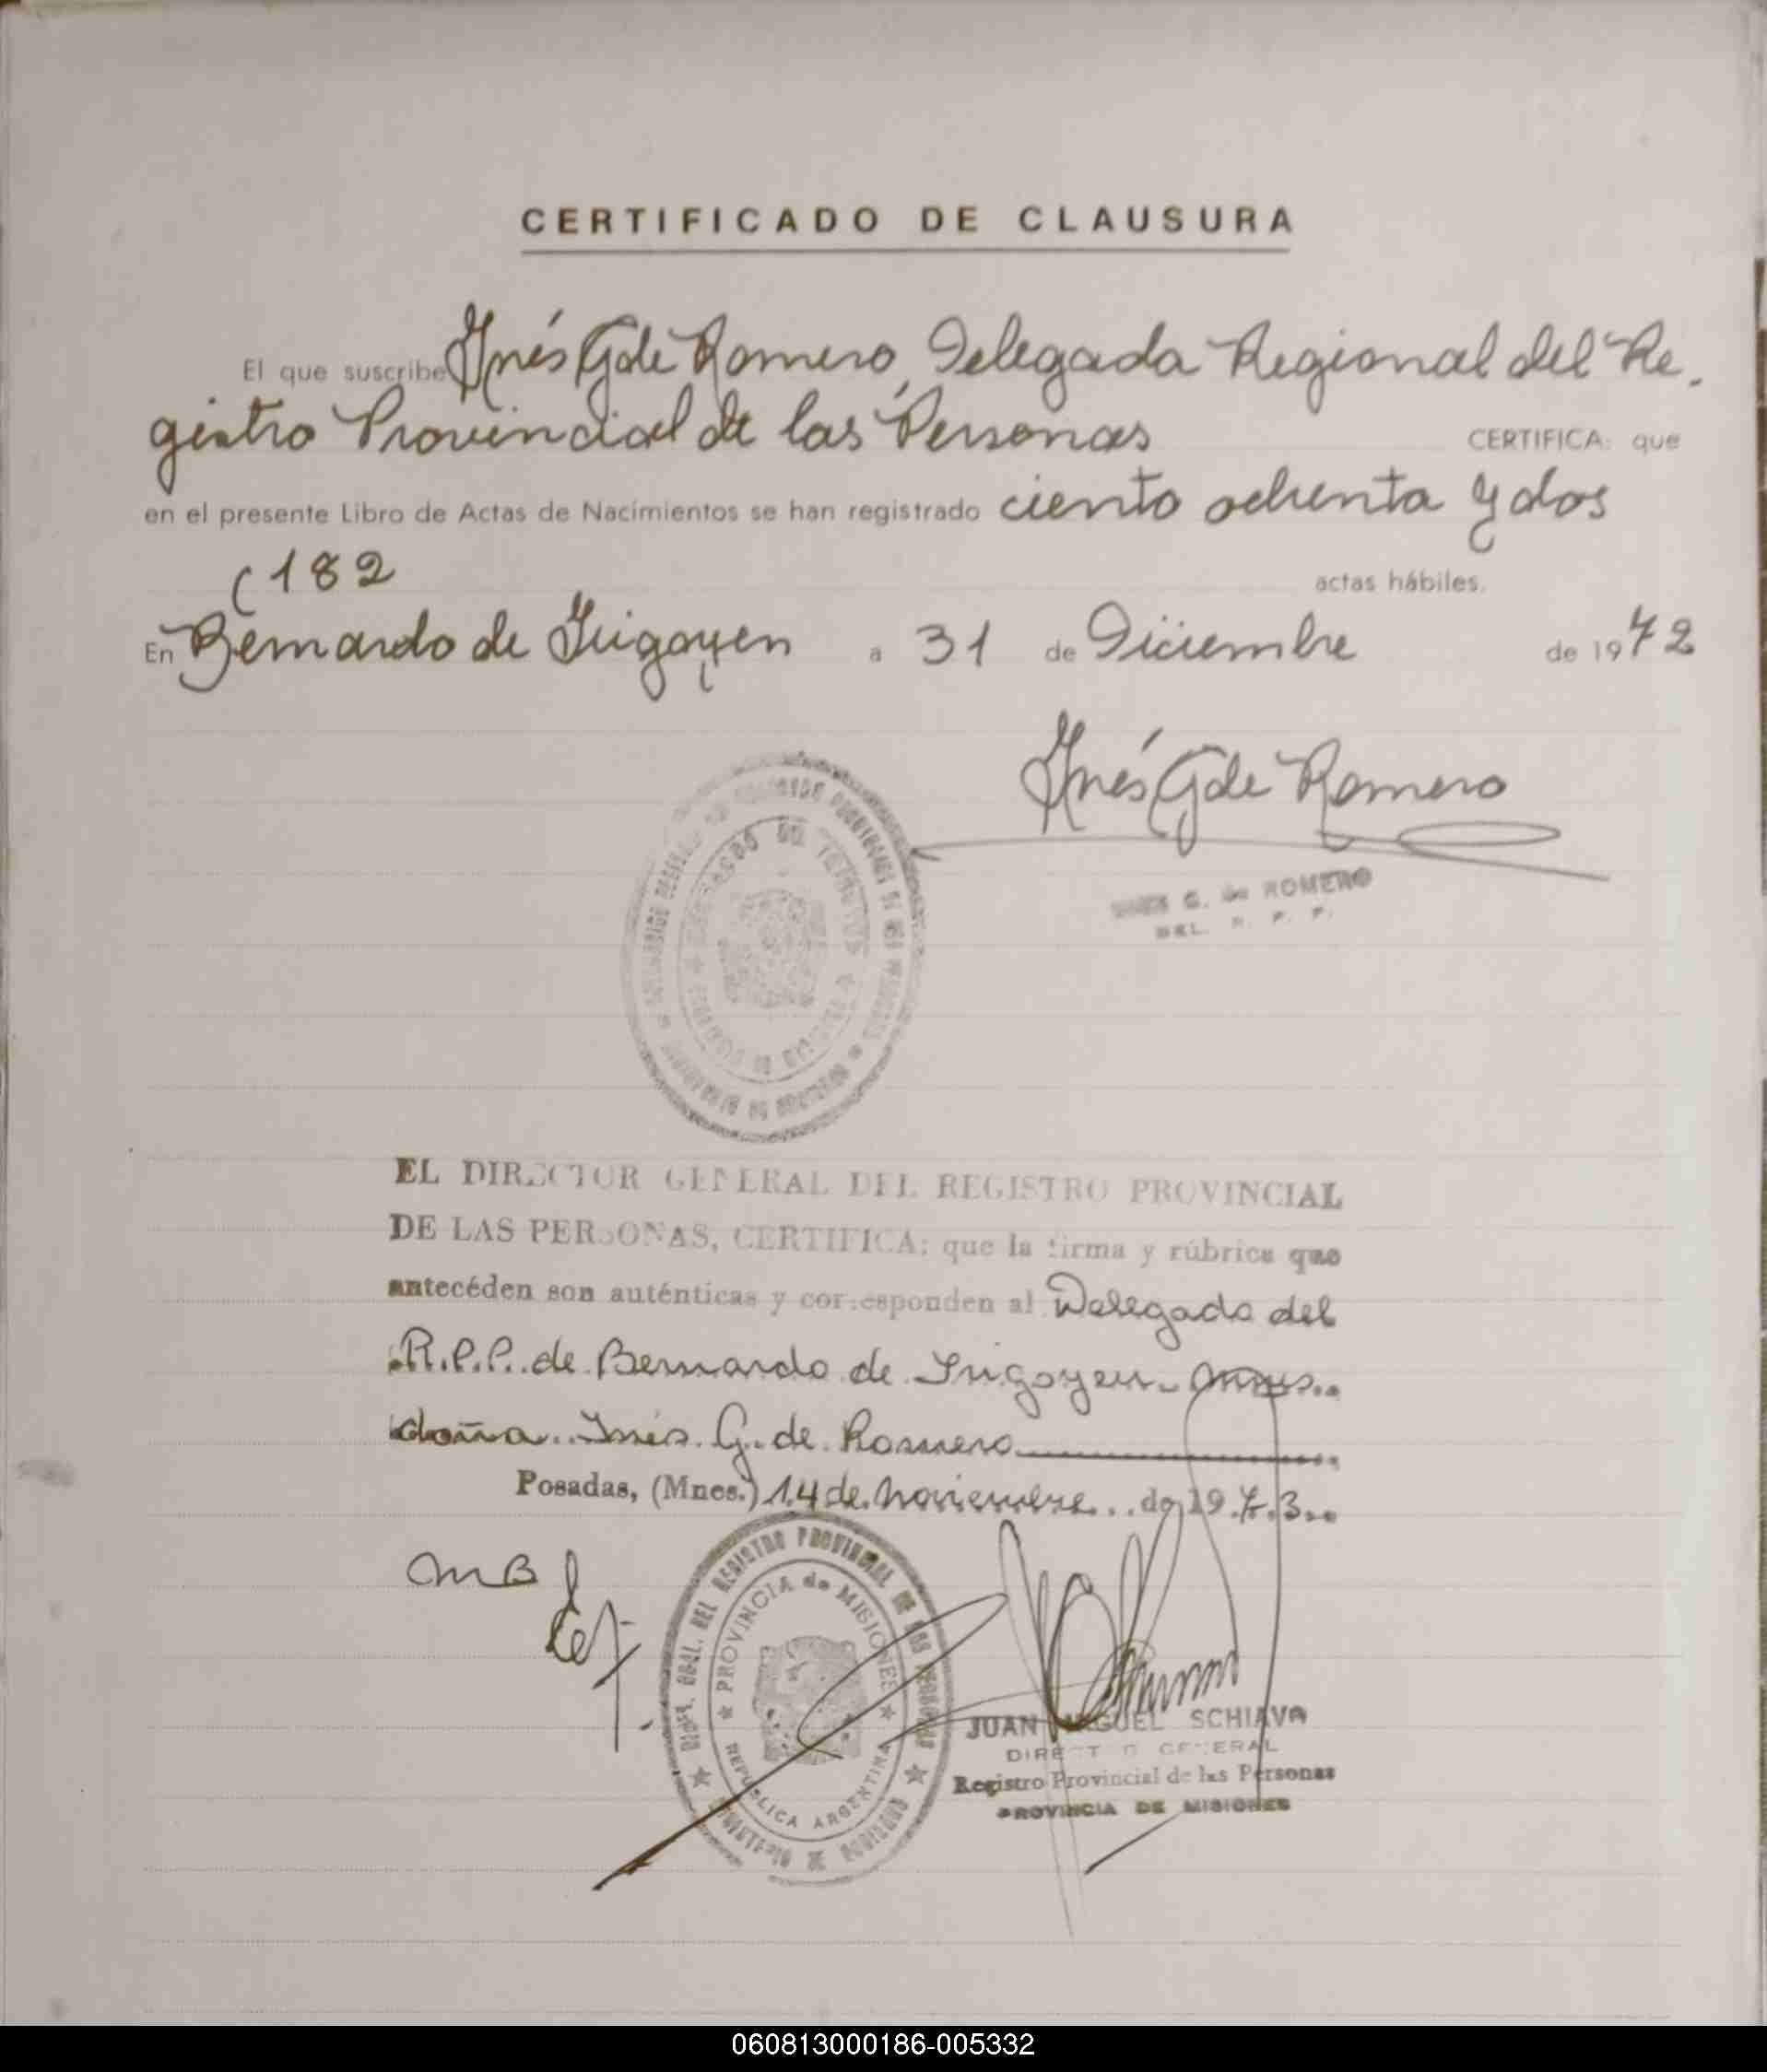 CERTIFICADO DE CLAUSURA
El que suscribe Inés G de Romero, Delegada Regional del Re-
gistro Provincial de las Personas CERTIFICA: que
en el presente Libro de Actas de Nacimientos se han registrado ciento ochenta y dos
(182 actas hábiles.
En Bernardo de Irigoyen a 31 de Diciembre de 1972
Inés G de Romero
INES G. de ROMERO
DEL. R. P. P.
EL DIRECTOR GENERAL DEL REGISTRO PROVINCIAL
DE LAS PERSONAS, CERTIFICA: que la firma y rúbrica que
antecéden son auténticas y corresponden al Delegado del
R.P.P. de Bernardo de Irigoyen - Mnes..
doña Inés G. de Romero
Posadas, (Mnes.) 14 de noviembre de 1973
MB
DIRE. GRAL. DEL REGISTRO PROVINCIAL DE LAS PERSONAS
PROVINCIA de MISIONES
REPÚBLICA ARGENTINA
MINISTERIO DE GOBIERNO
JUAN MIGUEL SCHIAVA
DIRECTOR GENERAL
Registro Provincial de las Personas
PROVINCIA DE MISIONES
060813000186-005332